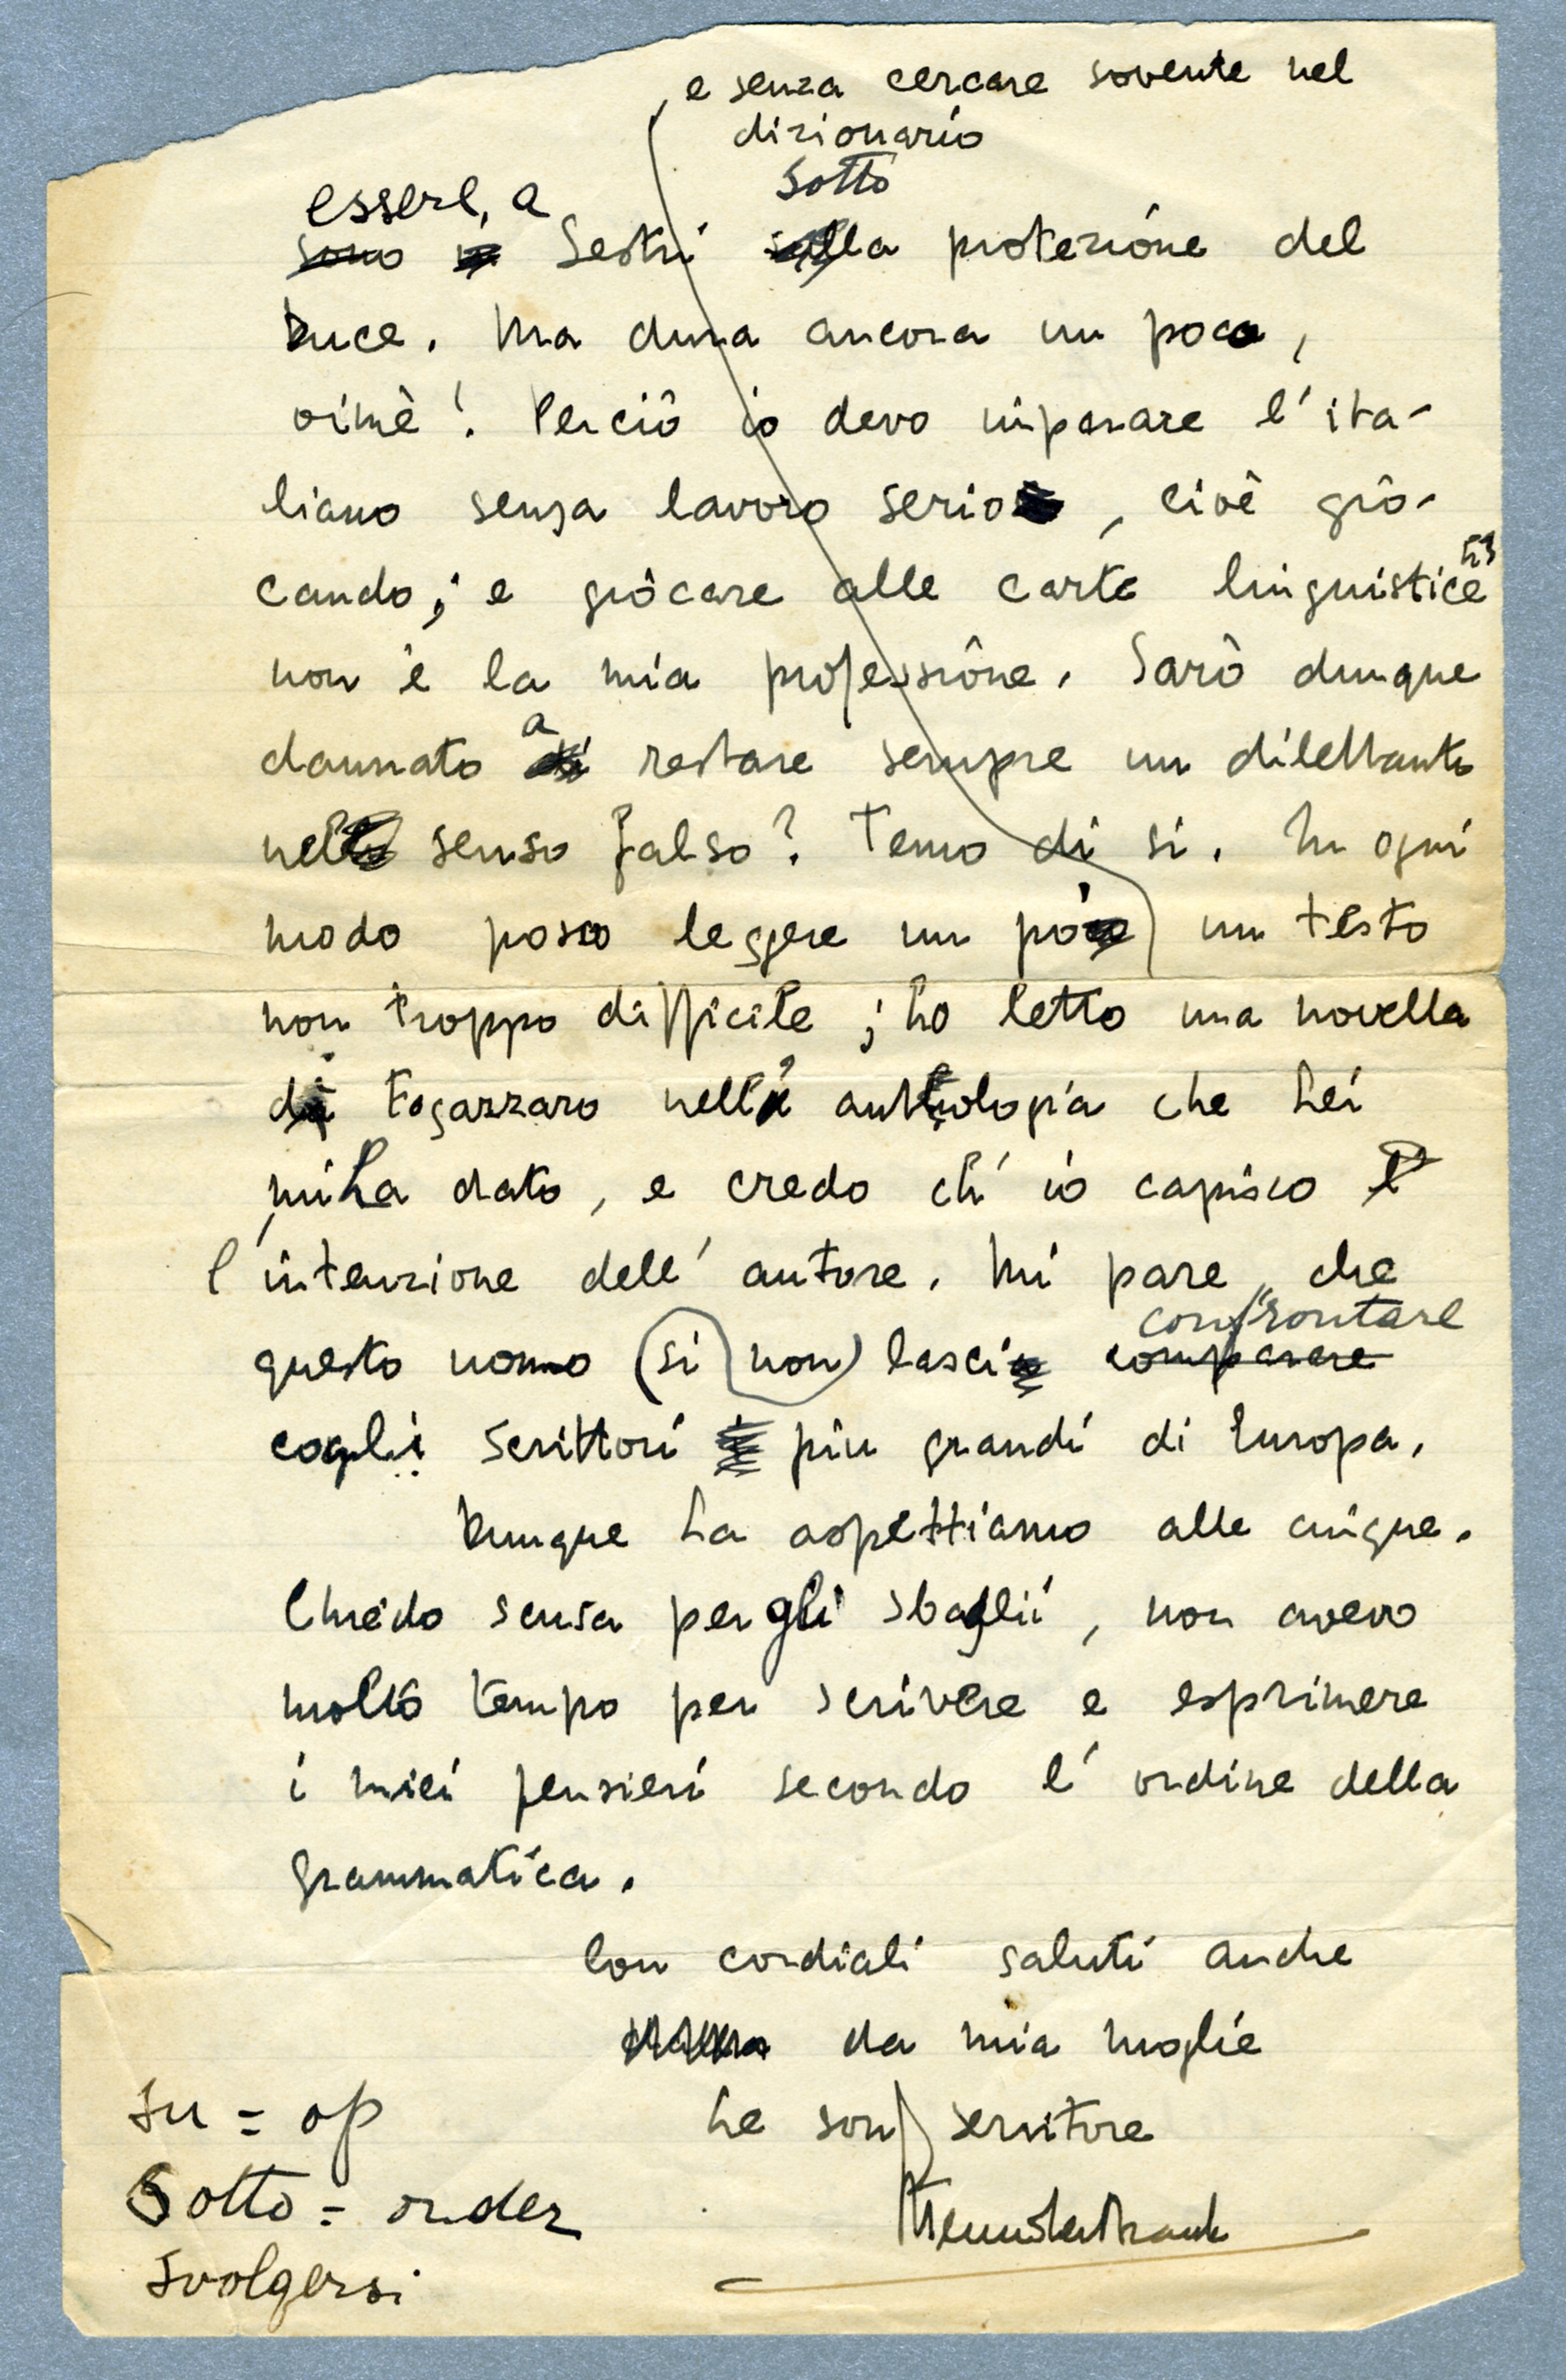 , e senza cercare sovente nel
dizionario
sotto
essere, a
sono in Sestri sulla protezióne del
Duce. Ma dura ancora un poco,
oimè! Perciô io devo imparare l'ita-
liano senza lavoro serio, cioè giô-
cando; e giôcare alle carte linguistice
non è la mia professiône. Sarò dunque
a
dannato di restare sempre un dilettante
nello senso falso? Temo di si. In ogni
modo posso leggere un pó un testo
non troppo difficile; ho letto una novella
di Fogazzaro nell' anthologia che Lei
mi ha dato, e credo ch' io capisco l'
l'intenzione dell' autore. Mi pare, che
confrontare
questo uomo (si non) lascia comparare
cogli scrittori i piu grandi di Europa.
Dunque La aspettiamo alle cinque.
Chiedo scusa per gli sbaglii, non avevo
molto tempo per scrivere e esprimere
i miei pensieri secondo l' ordine della
grammatica.
Con cordiali saluti anche
da mia moglie
Le son servitore
su = op
Sotto = onder
svolgersi